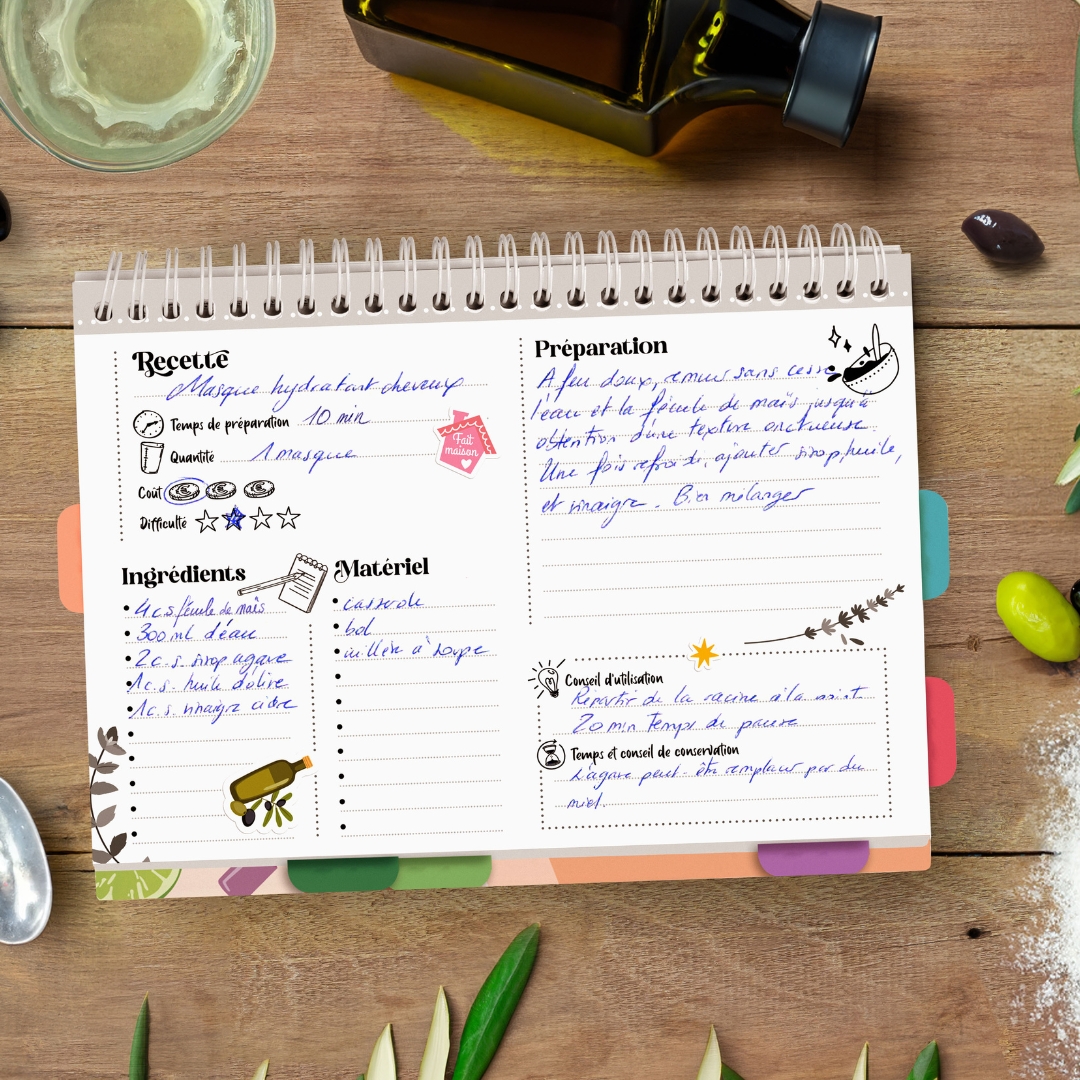 Recette
Masque hydratant cheveux
Temps de préparation 10 min
Quantité 1 masque
Coût
Difficulté
Fait
maison
Ingrédients
4 c.s fécule de maïs
300 ml d'eau
2 c.s. sirop agave
1 c.s. huile d'olive
1 c.s. vinaigre cidre
Matériel
casserole
bol
cuillère à soupe
Préparation
A feu doux, remuer sans cesse
l'eau et la fécule de maïs jusqu'à
obtention d'une texture onctueuse.
Une fois refroidi, ajouter sirop, huile,
et vinaigre. Bien mélanger
Conseil d'utilisation
Répartir de la racine à la pointe
20 min Temps de pause
Temps et conseil de conservation
L'agave peut-être remplacer par du
miel.